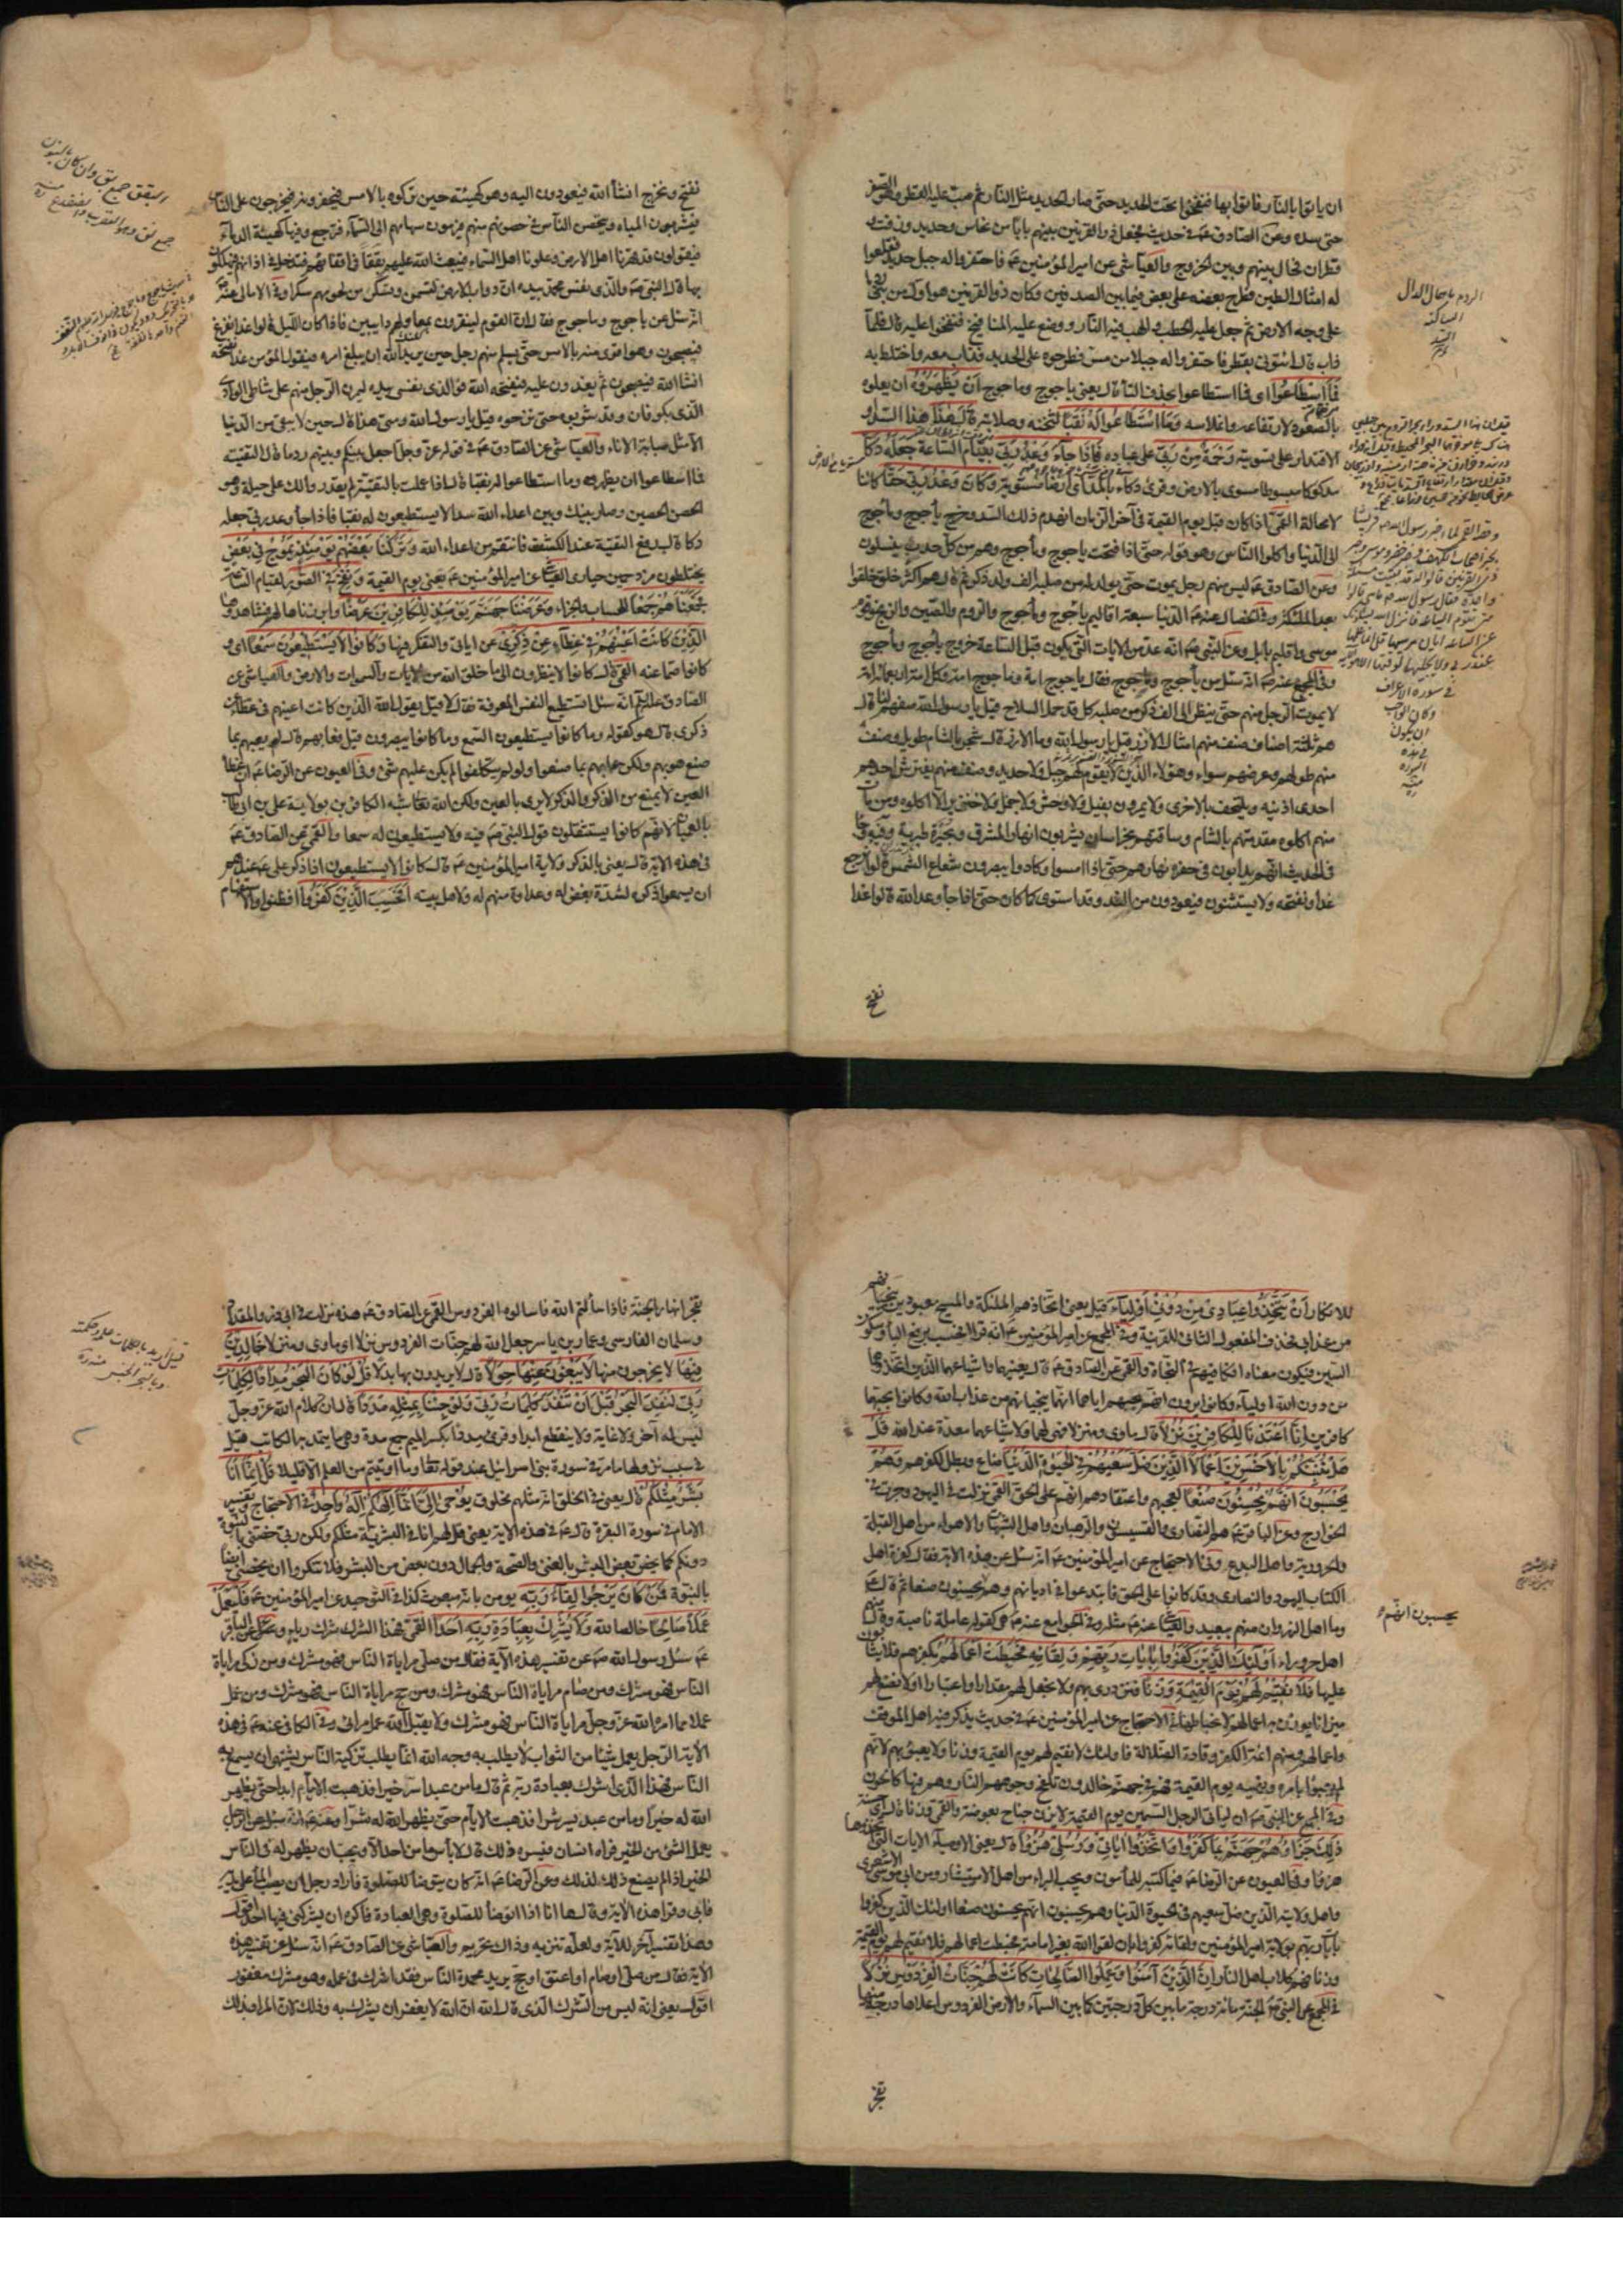 ان ياتوا بالنار فاتوا بها فنفخوا تحت الحديد حتى صار الحديد مثل النار ثم صب عليه القطر وهو الصفر
حتى سده وعن الصادق عم في حديث فجعل ذو القرنين بينهم بابا من نحاس وحديد وزفت و
قطران فحال بينهم وبين الخروج والعياشي عن امير المؤمنين عم فاحتفروا له جبل حديد فقلعوا
له امثال اللبن فطرح بعضه على بعض فيما بين الصدفين وكان ذو القرنين هو اول من بنى
على وجه الارض ثم جعل عليه الحطب والهب فيه النار ووضع عليه المنافيخ فنفخوا عليه قال فلما
ذاب قال ائتوني بقطر فاحتفروا له جبلا من مس فطرحوه على الحديد فذاب معه واختلط به
فَمَا اسْطَاعُوا اي فما استطاعوا بحذف التاء قال يعني ياجوج وماجوج أَنْ يَظْهَرُوهُ ان يعلوه
بالصعود لارتفاعه وانملاسه وَمَا اسْتَطَاعُوا لَهُ نَقْبًا لثخنه وصلابته قَالَ هَذَا هذا السد او
الاقتدار على تسويته رَحْمَةٌ مِنْ رَبِّي على عباده فَإِذَا جَاءَ وَعْدُ رَبِّي بقيام الساعة جَعَلَهُ دَكًّا
مدكوكا مبسوطا مسوى بالارض وقرئ دكاء بالمد اي ارضا مستوية وَكَانَ وَعْدُ رَبِّي حَقًّا كائنا
لا محالة القمي اذا كان قبل يوم القيمة في آخر الزمان انهدم ذلك السد وخرج ياجوج وماجوج
الى الدنيا واكلوا الناس وهو قوله حتى اذا فتحت ياجوج وماجوج وهم من كل حدب ينسلون
وعن الصادق عم ليس منهم رجل يموت حتى يولد له من صلبه الف ولد ذكر ثم قال هم اكثر خلق خلقوا
بعد الملئكة وفي الخصال عنه عم الدنيا سبعة اقاليم ياجوج وماجوج والروم والصين والزنج وقوم
موسى واقليم بابل وعن النبي ص انه عد من الايات التي يكون قبل الساعة خروج ياجوج وماجوج
وفي المجمع عنه ص انه سئل عن ياجوج وماجوج فقال ياجوج امة وماجوج امة وكل امة اربعمائة امة
لا يموت الرجل منهم حتى ينظر الى الف ذكر من صلبه كل قد حمل السلاح قيل يا رسول الله صفهم لنا قال
هم ثلثة اصناف صنف منهم امثال الارز قيل يا رسول الله وما الارز قال شجر بالشام طويل وصنف
منهم طولهم وعرضهم سواء وهؤلاء الذين لا يقوم لهم جبل ولا حديد وصنف منهم يفترش احدهم
احدى اذنيه ويلتحف بالاخرى ولا يمرون بفيل ولا وحش ولا جمل ولا خنزير الا اكلوه ومن مات
منهم اكلوه مقدمتهم بالشام وساقتهم بخراسان يشربون انهار المشرق وبحيرة طبرية
في الحديث انهم يدابون في حفره نهارهم حتى اذا امسوا وكادوا يبصرون شعاع الشمس قالوا نرجع
غدا ونفتحه ولا يستثنون فيعودون من الغد وقد استوى كما كان حتى اذا جاء وعد الله قالوا غدا
نفتح
نفتح ونخرج انشأ الله فيعودون اليه وهو كهيئته حين تركوه بالامس فيحفرونه فيخرجون على الناس
فيشربون المياه ويتحصن الناس في حصونهم منهم فيرمون سهامهم الى السماء فترجع وفيها كهيئة الدماء
فيقولون قد قهرنا اهل الارض وعلونا اهل السماء فيبعث الله عليهم نغفا في اقفائهم فتدخل في اذانهم فيهلكون
بها قال النبي ص والذي نفس محمد بيده ان دواب الارض لتسمن وتسكر من لحومهم سكرا وفي الامالي عنه ص
انه سئل عن ياجوج وماجوج فقال ان القوم لينقرون بمعاولهم دائبين فاذا كان الليل قالوا غدا نفرغ
فيصبحون وهو اقوى منه بالامس حتى يسلم منهم رجل حين يريد الله ان يبلغ امره فيقول المؤمن غدا نفتحه
انشا الله فيصبحون ثم يغدون عليه فيفتحه الله فوالذي نفسي بيده ليمرن الرجل منهم على شاطئ الوادي
الذي بكوفان وقد شربوه حتى نزحوه قيل يا رسول الله ومتى هذا قال حين لا يبقى من الدنيا
الا مثل صبابة الاناء والعياشي عن الصادق عم في قوله عز وجل اجعل بينكم وبينهم ردما قال التقية
فما اسطاعوا ان يظهروه وما استطاعوا له نقبا قال اذا عملت بالتقية لم يقدروا لك على حيلة وهو
الحصن الحصين وصار بينك وبين اعداء الله سدا لا يستطيعون له نقبا فاذا جاء وعد ربي جعله
دكا قال رفع التقية عند الكشف فانتقم من اعداء الله وَتَرَكْنَا بَعْضَهُمْ يَوْمَئِذٍ يَمُوجُ فِي بَعْضٍ
يختلطون مزدحمين حيارى العياشي عن امير المؤمنين عم يعني يوم القيمة وَنُفِخَ فِي الصُّورِ لقيام الساعة
فَجَمَعْنَاهُمْ جَمْعًا للحساب والجزاء وَعَرَضْنَا جَهَنَّمَ يَوْمَئِذٍ لِلْكَافِرِينَ عَرْضًا وابرزناها لهم فشاهدوها
الَّذِينَ كَانَتْ أَعْيُنُهُمْ فِي غِطَاءٍ عَنْ ذِكْرِي عن اياتي والتفكر فيها وَكَانُوا لَا يَسْتَطِيعُونَ سَمْعًا اي و
كانوا صما عنه القمي قال كانوا لا ينظرون الى ما خلق الله من الايات والسموات والارض والعياشي عن
الصادق عليه السلم انه سئل اتستطيع النفس المعرفة فقال لا قيل يقول الله الذين كانت اعينهم في غطاء عن
ذكري قال هو كقوله وما كانوا يستطيعون السمع وما كانوا يبصرون قيل فعابهم قال لم يعبهم بما
صنع هو بهم ولكن عابهم بما صنعوا ولو لم يتكلفوا لم يكن عليهم شئ وفي العيون عن الرضا عم ان غطاء
العين لا يمنع من الذكر والذكر لا يرى بالعين ولكن الله شبه الكافرين بولاية علي بن ابي طالب
بالعميان لانهم كانوا يستثقلون قول النبي ص فيه ولا يستطيعون له سمعا والقمي عن الصادق عم
في هذه الاية قال يعني بالذكر ولاية امير المؤمنين عم قال كانوا لا يستطيعون اذا ذكر علي عم عندهم
ان يسمعوا ذكره لشدة بغض له وعداوة منهم له ولاهل بيته أَفَحَسِبَ الَّذِينَ كَفَرُوا افظنوا والاستفهام
للانكار أَنْ يَتَّخِذُوا عِبَادِي مِنْ دُونِي أَوْلِيَاءَ قيل يعني اتخاذهم الملئكة والمسيح معبودين ينجيهم
من عذابي فحذف المفعول الثاني للقرينة وفي المجمع عن امير المؤمنين عم انه قرأ افحسب برفع الباء وسكون
السين فيكون معناه افكافيهم في النجاة والقمي عن الصادق عم قال يعنيهما واشياعهما الذين اتخذوهما
من دون الله اولياء وكانوا يرون انهم بحبهم اياهما انهما ينجيانهم من عذاب الله وكانوا بحبهما
كافرين إِنَّا أَعْتَدْنَا لِلْكَافِرِينَ نُزُلًا قال ماوى ومنزلا فهي لهما ولاشياعهما معدة عند الله قُلْ
هَلْ نُنَبِّئُكُمْ بِالْأَخْسَرِينَ أَعْمَالًا الَّذِينَ ضَلَّ سَعْيُهُمْ فِي الْحَيَوةِ الدُّنْيَا ضاع وبطل لكفرهم وَهُمْ
يَحْسَبُونَ أَنَّهُمْ يُحْسِنُونَ صُنْعًا لعجبهم واعتقادهم انهم على الحق القمي نزلت في اليهود وجرت في
الخوارج وعن الباقر عم هم النصارى والقسيسون والرهبان واهل الشبهات والاهواء من اهل القبلة
والحرورية واهل البدع وفي الاحتجاج عن امير المؤمنين عم انه سئل عن هذه الاية فقال كفرة اهل
الكتاب اليهود والنصارى وقد كانوا على الحق فابتدعوا في اديانهم وهم يحسبون صنعا ثم قال
وما اهل النهروان منهم ببعيد والعياشي عنه عم مثله وفي الجوامع عنه عم هي كقوله عاملة ناصبة وقال منهم
اهل حروراء أُولَئِكَ الَّذِينَ كَفَرُوا بِآيَاتِ رَبِّهِمْ وَلِقَائِهِ فَحَبِطَتْ أَعْمَالُهُمْ بكفرهم فلا يثابون
عليها فَلَا نُقِيمُ لَهُمْ يَوْمَ الْقِيمَةِ وَزْنًا فنزدري بهم ولا نجعل لهم مقدارا واعتبارا او لا نضع لهم
ميزانا يوزن به اعمالهم لانحباطها في الاحتجاج عن امير المؤمنين عم في حديث يذكر فيه اهل الموقف
واحوالهم ومنهم ائمة الكفر وقادة الضلالة فاولئك لا نقيم لهم يوم القيمة وزنا ولا يعبؤ بهم لانهم
لم يعبؤا بامره ونهيه يوم القيمة فهم في جهنم خالدون تلفح وجوههم النار وهم فيها كالحون
وفي المجمع عن النبي ص انه لياتي الرجل السمين يوم القيمة لا يزن جناح بعوضة والقمي وزنا قال اي حسنة
ذَلِكَ جَزَاؤُهُمْ جَهَنَّمُ بِمَا كَفَرُوا وَاتَّخَذُوا آيَاتِي وَرُسُلِي هُزُوًا قال يعني الاوصياء الايات التي اتخذوها
هزوا وفي العيون عن الرضا عم فيما كتبه للمأمون ويجب البراءة من اهل الاستيثار ومن ابي موسى الاشعري
واهل ولايته الذين ضل سعيهم في الحيوة الدنيا وهم يحسبون انهم يحسنون صنعا اولئك الذين كفروا
بآيات ربهم بولاية امير المؤمنين ولقائه كفروا بان لقوا الله بغير امامته فحبطت اعمالهم فلا نقيم لهم يوم القيمة
وزنا فهم كلاب اهل النار إِنَّ الَّذِينَ آمَنُوا وَعَمِلُوا الصَّالِحَاتِ كَانَتْ لَهُمْ جَنَّاتُ الْفِرْدَوْسِ نُزُلًا
في المجمع عن النبي ص الجنة مائة درجة ما بين كل درجتين كما بين السماء والارض الفردوس اعلاها درجة منها
تفجر
يحسبون انهم
تفجر انهار الجنة فاذا سألتم الله فاسالوه الفردوس القمي عن الصادق عم هذه نزلت في ابي ذر والمقداد
وسلمان الفارسي وعمار بن ياسر جعل الله لهم جنات الفردوس نزلا اي ماوى ومنزلا خَالِدِينَ
فِيهَا لَا يخرجون منها لَا يَبْغُونَ عَنْهَا حِوَلًا قال لا يريدون بها بدلا قُلْ لَوْ كَانَ الْبَحْرُ مِدَادًا لِكَلِمَاتِ
رَبِّي لَنَفِدَ الْبَحْرُ قَبْلَ أَنْ تَنْفَدَ كَلِمَاتُ رَبِّي وَلَوْ جِئْنَا بِمِثْلِهِ مَدَدًا قال ان كلام الله عز وجل
ليس له آخر ولا غاية ولا ينقطع ابدا وقرئ مددا بكسر الميم جمع مدة وهي ما يستمد به الكاتب قيل
في سبب نزولها ما مر في سورة بني اسرائيل عند قوله تعا وما اوتيتم من العلم الا قليلا قُلْ إِنَّمَا أَنَا
بَشَرٌ مِثْلُكُمْ قال يعني في الخلق انه مثلهم مخلوق يُوحَى إِلَيَّ أَنَّمَا إِلَهُكُمْ إِلَهٌ وَاحِدٌ في الاحتجاج وتفسير
الامام في سورة البقرة قال عم في هذه الاية يعني قل لهم انا في البشرية مثلكم ولكن ربي خصني بالنبوة
دونكم كما يخص بعض البشر بالغنى والصحة والجمال دون بعض من البشر فلا تنكروا ان يخصني ايضا
بالنبوة فَمَنْ كَانَ يَرْجُوا لِقَاءَ رَبِّهِ يومن بانه مبعوث كذا في التوحيد عن امير المؤمنين عم فَلْيَعْمَلْ
عَمَلًا صَالِحًا خالصا لله وَلَا يُشْرِكْ بِعِبَادَةِ رَبِّهِ أَحَدًا القمي فهذا الشرك شرك رياء وعن الباقر
عم سئل رسول الله ص عن تفسير هذه الآية فقال من صلى مراياة الناس فهو مشرك ومن زكى مراياة
الناس فهو مشرك ومن صام مراياة الناس فهو مشرك ومن حج مراياة الناس فهو مشرك ومن عمل
عملا مما امره الله عز وجل مراياة الناس فهو مشرك ولا يقبل الله عمل مراء وفي الكافي عنه عم في هذه
الآية الرجل يعمل شيئا من الثواب لا يطلب به وجه الله انما يطلب تزكية الناس يشتهي ان يسمع به
الناس فهذا الذي اشرك بعبادة ربه ثم قال ما من عبد اسر خيرا فذهبت الايام ابدا حتى يظهر
الله له خيرا وما من عبد يسر شرا فذهبت الايام حتى يظهر الله له شرا وعنه عم انه سئل عن الرجل
يعمل الشئ من الخير فراه انسان فيسره ذلك قال لا بأس ما من احد الا ويحب ان يظهر له في الناس
الخير اذا لم يصنع ذلك لذلك وعن الرضا عم انه كان يتوضأ للصلوة فاراد رجل ان يصب الماء على يديه
فابى وقرا هذه الآية وقال ها انا ذا اتوضأ للصلوة وهي العبادة فاكره ان يشركني فيها احد اقول
وهذا تفسير آخر للآية ولعله تنزيه وذاك تحريم والعياشي عن الصادق عم انه سئل عن تفسير هذه
الآية فقال من صلى او صام او اعتق او حج يريد محمدة الناس فقد اشرك في عمله وهو مشرك مغفور
اقول يعني انه ليس من الشرك الذي قال الله ان الله لا يغفر ان يشرك به وذلك لان المراد بذلك